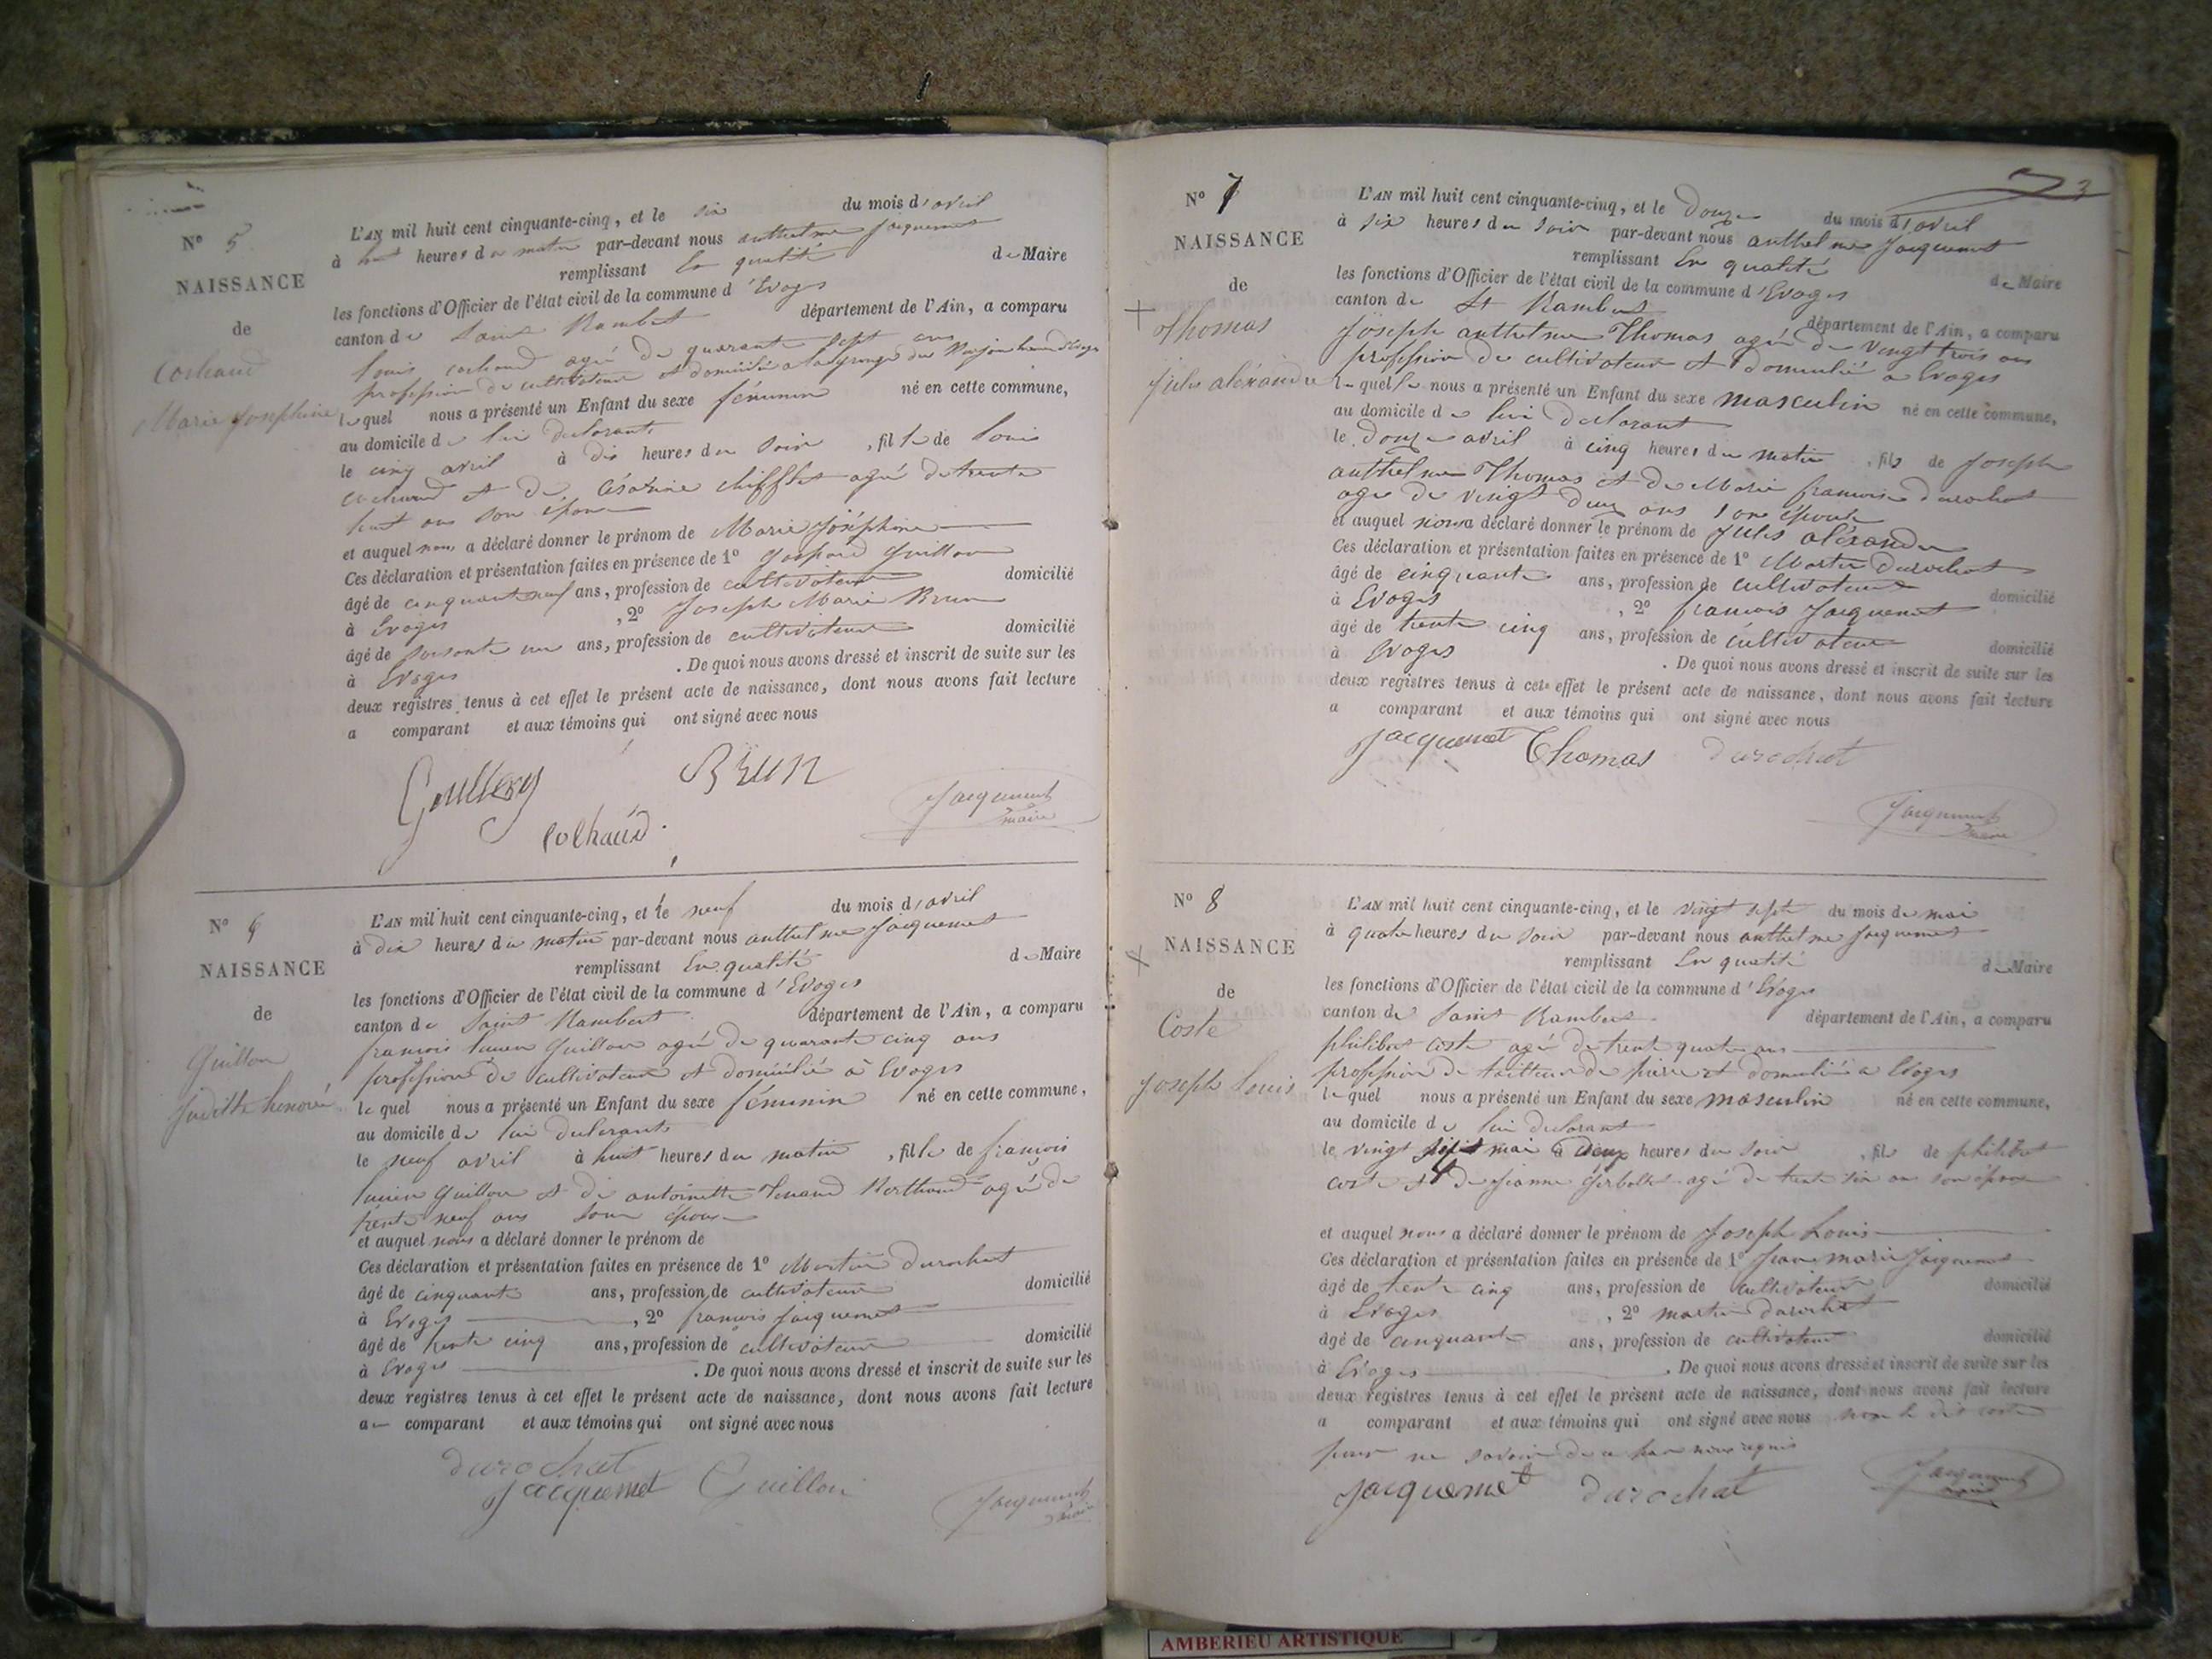 N° 5
NAISSANCE
de
Cochaud
Marie Joséphine
L'AN mil huit cent cinquante-cinq, et le six du mois d'avril
à huit heures du matin par-devant nous anthelme Jacquemet
remplissant en qualité de Maire
les fonctions d'Officier de l'état civil de la commune d'Evoges
canton de Saint Rambert département de l'Ain, a comparu
Louis cochaud agé de quarante sept ans
profession de cultivateur et domicilié a la grange du
lequel nous a présenté un Enfant du sexe féminin né en cette commune,
au domicile de lui déclarant
le cinq avril à dix heures du soir, fille de Louis
cochaud et de césarine chifflet agé de trente
huit ans son épouse
et auquel nous a déclaré donner le prénom de Marie Joséphine
Ces déclaration et présentation faites en présence de 1° Gaspard Guillon
âgé de cinquante neuf ans, profession de cultivateur domicilié
à Evoges, 2° Joseph Marie Brun
âgé de soixante un ans, profession de cultivateur domicilié
à Evoges. De quoi nous avons dressé et inscrit de suite sur les
deux registres tenus à cet effet le présent acte de naissance, dont nous avons fait lecture
a comparant et aux témoins qui ont signé avec nous
BRUN
Jacquemet
maire
N° 6
NAISSANCE
de
Guillon
Judith honoré
L'AN mil huit cent cinquante-cinq, et le neuf du mois d'avril
à dix heures du matin par-devant nous anthelme Jacquemet
remplissant En qualité de Maire
les fonctions d'Officier de l'état civil de la commune d'Evoges
canton de Saint Rambert département de l'Ain, a comparu
francois lucien Guillon agé de quarante cinq ans
profession de cultivateur et domicilié à Evoges
lequel nous a présenté un Enfant du sexe féminin né en cette commune,
au domicile de lui déclarant
le neuf avril à huit heures du matin, fille de francois
lucien Guillon et de antoinette Tenand Berthaud agé de
trente neuf ans son épouse
et auquel nous a déclaré donner le prénom de
Ces déclaration et présentation faites en présence de 1° Martin Durochat
âgé de cinquante ans, profession de cultivateur domicilié
à Evoges, 2° francois Jacquemet
âgé de trente cinq ans, profession de cultivateur domicilié
à Evoges. De quoi nous avons dressé et inscrit de suite sur les
deux registres tenus à cet effet le présent acte de naissance, dont nous avons fait lecture
a comparant et aux témoins qui ont signé avec nous
Durochat
Jacquemet Guillon
Jacquemet
maire
3
N° 7
NAISSANCE
de
Thomas
Jules aléxandre
L'AN mil huit cent cinquante-cinq, et le Douze du mois d'avril
à six heures du soir par-devant nous anthelme Jacquemet
remplissant En qualité de Maire
les fonctions d'Officier de l'état civil de la commune d'Evoges
canton de St Rambert département de l'Ain, a comparu
Joseph anthelme Thomas agé de vingt trois ans
profession de cultivateur et domicilié a Evoges
lequel nous a présenté un Enfant du sexe masculin né en cette commune,
au domicile de lui déclarant
le Douze avril à cinq heures du matin, fils de Joseph
anthelme Thomas et de Marie francoise durochat
age de vingt deux ans son épouse
et auquel nous a déclaré donner le prénom de Jules aléxandre
Ces déclaration et présentation faites en présence de 1° Martin Durochat
âgé de cinquante ans, profession de cultivateur domicilié
à Evoges, 2° francois Jacquemet
âgé de trente cinq ans, profession de cultivateur domicilié
à Evoges. De quoi nous avons dressé et inscrit de suite sur les
deux registres tenus à cet effet le présent acte de naissance, dont nous avons fait lecture
a comparant et aux témoins qui ont signé avec nous
Jacquemet Thomas Durochat
Jacquemet
Maire
N° 8
NAISSANCE
de
Coste
Joseph Louis
L'AN mil huit cent cinquante-cinq, et le vingt sept du mois de mai
à quatre heures du soir par-devant nous anthelme Jacquemet
remplissant En qualité de Maire
les fonctions d'Officier de l'état civil de la commune d'Evoges
canton de Saint Rambert département de l'Ain, a comparu
philibert coste agé de trente quatre ans
profession de tailleur de pierre et domicilié a Evoges
lequel nous a présenté un Enfant du sexe masculin né en cette commune,
au domicile de lui déclarant
le vingt sept mai à Deux heures du soir, fils de philibert
coste et de jeanne agé de trente six ans son épouse
et auquel nous a déclaré donner le prénom de Joseph Louis
Ces déclaration et présentation faites en présence de 1° Jean marie Jacquemet
âgé de trente cinq ans, profession de cultivateur domicilié
à Evoges, 2° martin Durochat
âgé de cinquante ans, profession de cultivateur domicilié
à Evoges. De quoi nous avons dressé et inscrit de suite sur les
deux registres tenus à cet effet le présent acte de naissance, dont nous avons fait lecture
a comparant et aux témoins qui ont signé avec nous non le dit coste
pour ne savoir de ce par nous requis
Jacquemet Durochat
Jacquemet
maire
AMBERIEU ARTISTIQUE